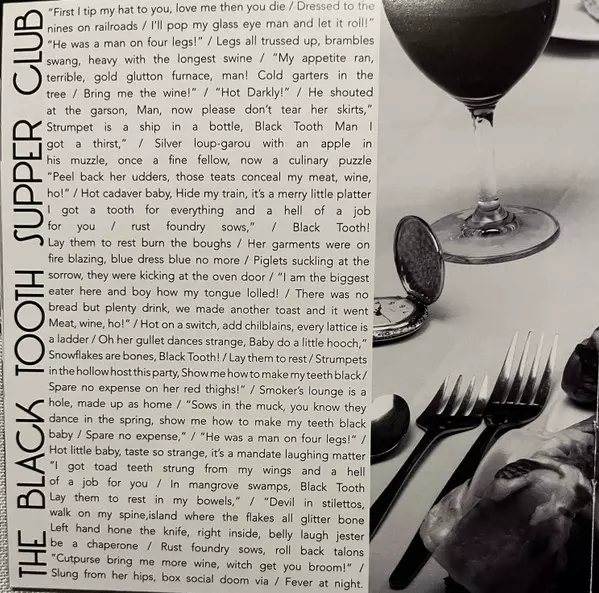 THE BLACK TOOTH SUPPER CLUB
"First I tip my hat to you, love me then you die / Dressed to the
nines on railroads / I'll pop my glass eye man and let it roll!"
"He was a man on four legs!" / Legs all trussed up, brambles
swang, heavy with the longest swine / "My appetite ran,
terrible, gold glutton furnace, man! Cold garters in the
tree / Bring me the wine!" / "Hot Darkly!" / He shouted
at the garson, Man, now please don't tear her skirts,"
Strumpet is a ship in a bottle, Black Tooth Man I
got a thirst," / Silver loup-garou with an apple in
his muzzle, once a fine fellow, now a culinary puzzle
"Peel back her udders, those teats conceal my meat, wine,
ho!" / Hot cadaver baby, Hide my train, it's a merry little platter
I got a tooth for everything and a hell of a job
for you / rust foundry sows," / Black Tooth!
Lay them to rest burn the boughs / Her garments were on
fire blazing, blue dress blue no more / Piglets suckling at the
sorrow, they were kicking at the oven door / "I am the biggest
eater here and boy how my tongue lolled! / There was no
bread but plenty drink, we made another toast and it went
Meat, wine, ho!" / Hot on a switch, add chilblains, every lattice is
a ladder / Oh her gullet dances strange, Baby do a little hooch,"
Snowflakes are bones, Black Tooth! / Lay them to rest / Strumpets
in the hollow host this party, Show me how to make my teeth black /
Spare no expense on her red thighs!" / Smoker's lounge is a
hole, made up as home / "Sows in the muck, you know they
dance in the spring, show me how to make my teeth black
baby / Spare no expense," / "He was a man on four legs!" /
Hot little baby, taste so strange, it's a mandate laughing matter
"I got toad teeth strung from my wings and a hell
of a job for you / In mangrove swamps, Black Tooth
Lay them to rest in my bowels," / "Devil in stilettos,
walk on my spine,island where the flakes all glitter bone
Left hand hone the knife, right inside, belly laugh jester
be a chaperone / Rust foundry sows, roll back talons
"Cutpurse bring me more wine, witch get you broom!" /
Slung from her hips, box social doom via / Fever at night.